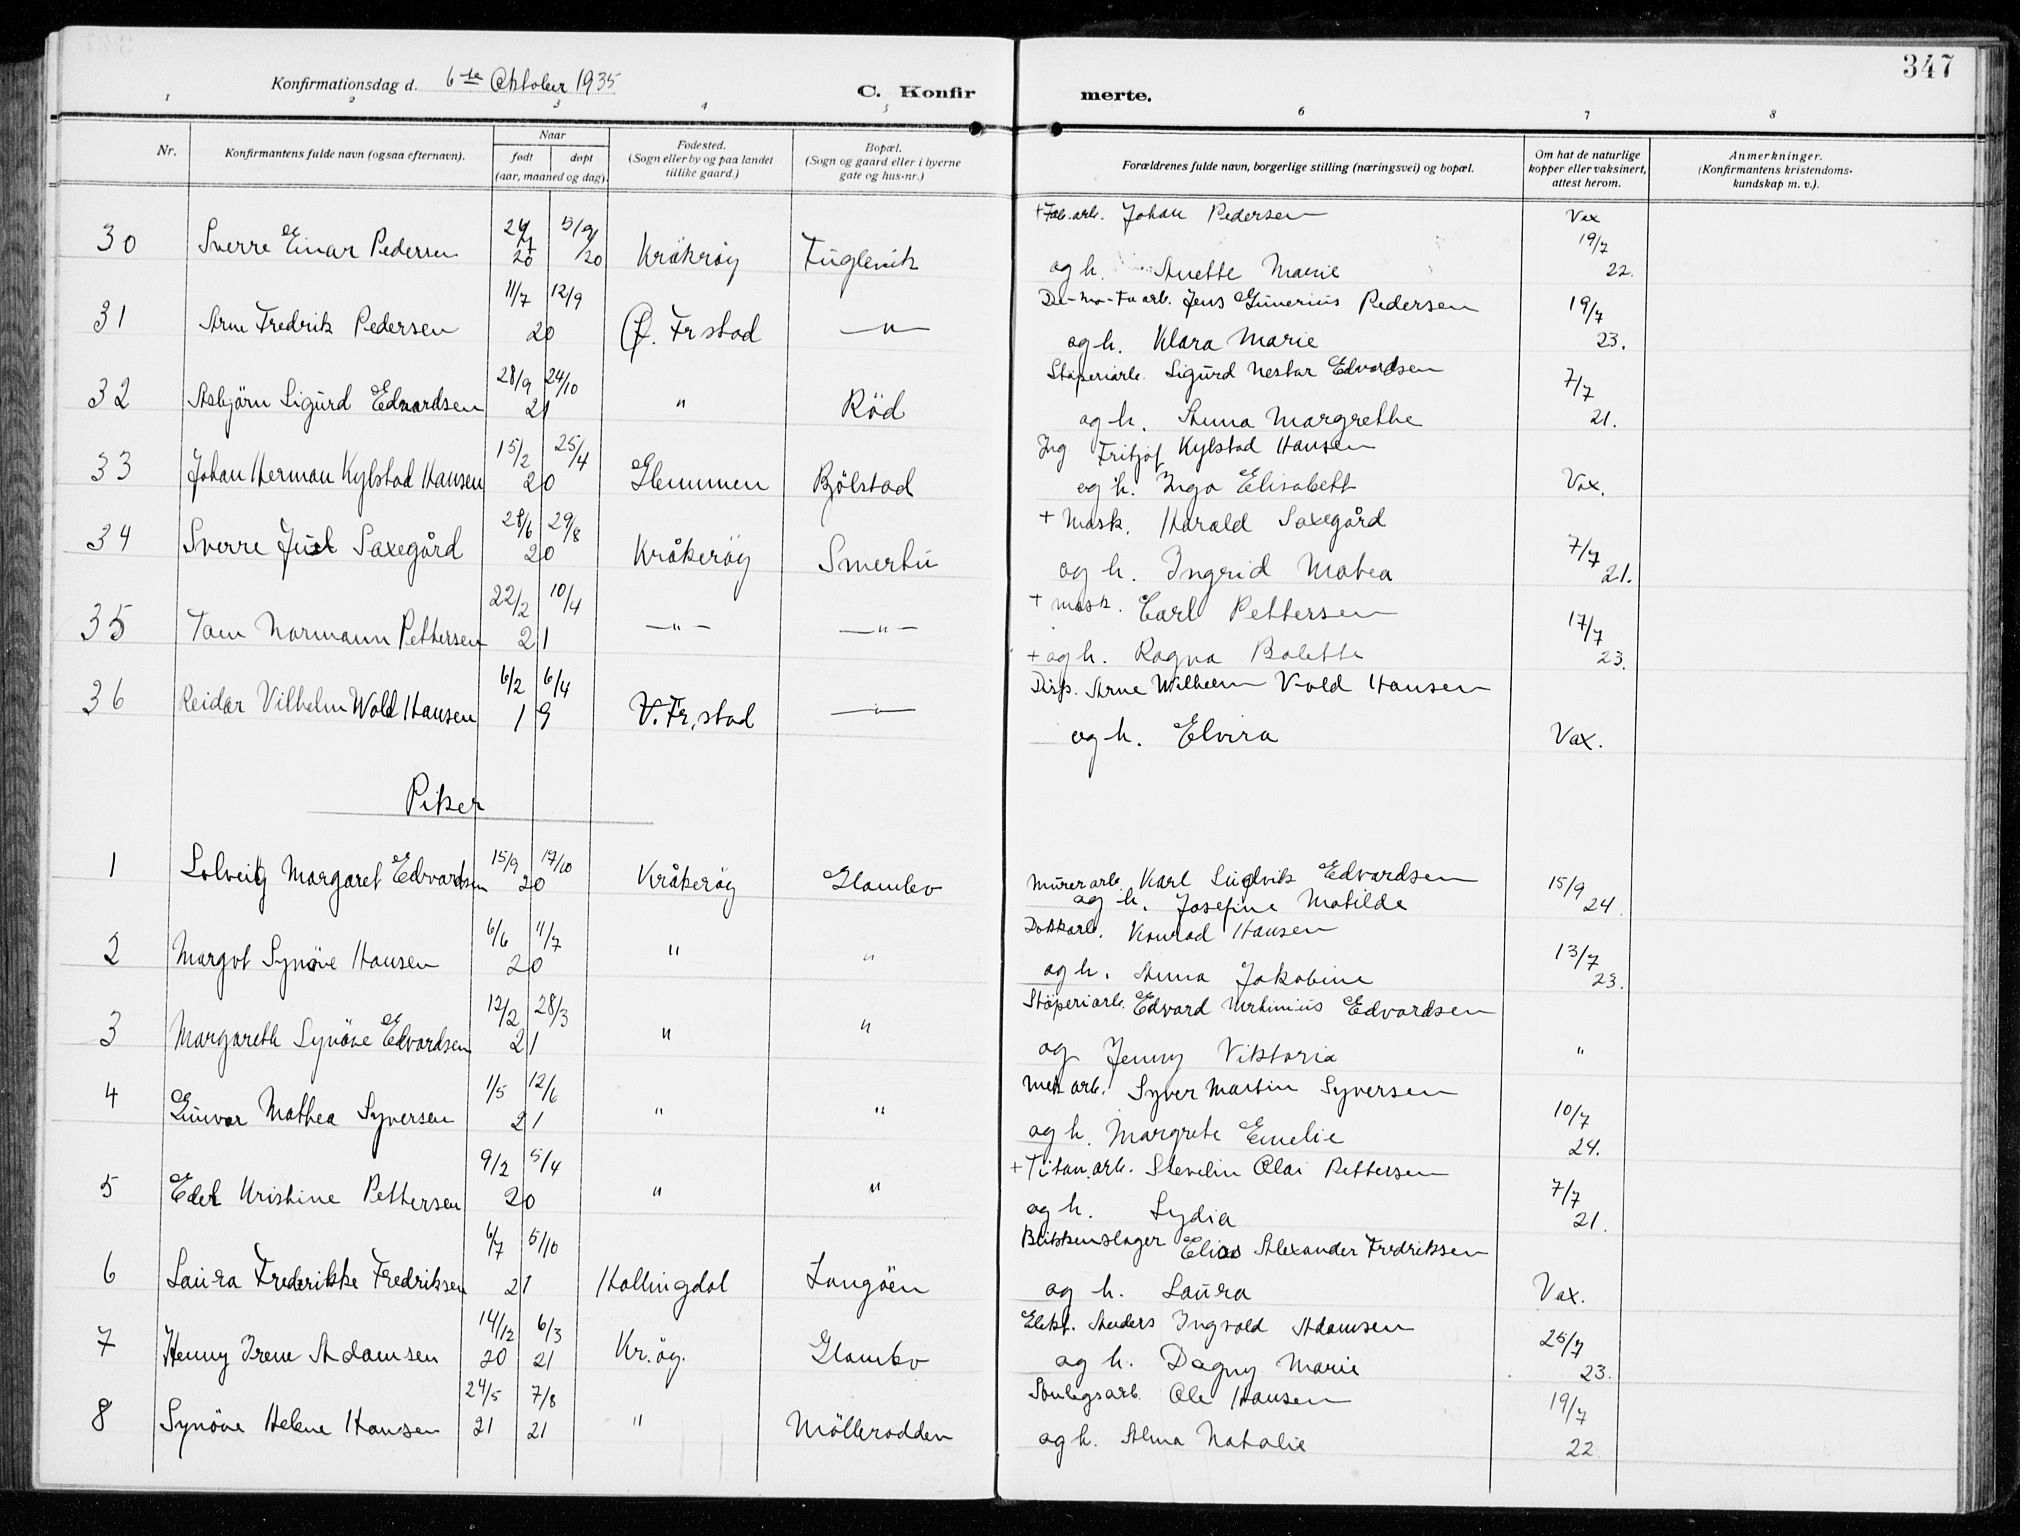 347
Konfirmationsdag d. 6te Oktober 1935
C. Konfirmerte.
1 2 3 4 5 6 7 8
Nr. Konfirmantens fulde navn (ogsaa efternavn). Naar født døpt (aar, maaned og dag). Fødested. (Sogn eller by og paa landet tillike gaard.) Bopæl. (Sogn og gaard eller i byerne gate og hus-nr.) Forældrenes fulde navn, borgerlige stilling (næringsvei) og bopæl. Om hat de naturlige kopper eller vaksinert, attest herom. Anmerkninger. (Konfirmantens kristendoms-kundskap m. v.).
+ Fab.arb. Johan Pedersen Vax
30 Sverre Einar Pedersen 24/7 20 5/9 /20 Kråkröy Fuglevik og h. Anette Marie 19/7 22.
31 Arne Fredrik Pedersen 11/7 12/9 20 Ø. Frstad —"— De-No-Fa arb. Jens Gunerius Pedersen 19/7
og h. Klara Marie 23.
32 Asbjörn Sigurd Edvardsen 28/9 24/10 21 " Röd Stöperiarb. Sigurd Nestor Edvardsen 7/7
og h. Anna Margrethe 21.
33 Johan Herman Kylstad Hansen 15/2 25/4 20 Glemmen Bjölstad Ing Fritjof Kylstad Hansen
og h. Inga Elisabeth Vax.
34 Sverre Juel Saxegård 28/6 29/8 20 Kråkeröy Smertu + Mask. Harald Saxegård
og h. Ingrid Matea 7/7 21.
35 Tom Normann Pettersen 22/2 10/4 21 —"— —"— + mask. Carl Pettersen 17/7
+ og h. Ragna Bolette 23.
36 Reidar Vilhelm Wold Hansen 6/2 6/4 19 V. Fr.stad —"— Disp. Arne Wilhelm Vold Hansen
og h. Elvira Vax.
Piker
1 Solveig Margaret Edvardsen 15/9 17/10 20 Kråkeröy Glombo Murerarb. Karl Ludvik Edvardsen 15/9
og h. Josefine Matilde 24.
2 Margot Synöve Hansen 6/6 11/7 20 " " Dokkarb. Konrad Hansen 13/7
og h. Anna Jakobine 23.
3 Margareth Synöve Edvardsen 12/2 28/3 21 " " Stöperiarb. Edvard Martinius Edvardsen
og Jenny Viktoria "
4 Gunvor Mathea Syversen 1/5 12/6 21 " " Mek arb. Syver Martin Syversen 10/7
og h. Margrete Emelie 24.
5 Edel Kristine Pettersen 9/2 5/4 20 " " + Titan.arb. Stevelin Olai Pettersen 7/7
og h. Lydia 21.
6 Laura Frederikke Fredriksen 6/7 5/10 21 Hallingdal Langöen Blikkenslager Elias Alexander Fredriksen
og h. Laura Vax.
7 Henny Irene Adamsen 14/12 20 6/3 21 Kr.öy. Glombo Elekt. Anders Ingvald Adamsen 25/7
og h. Dagny Marie 23.
8 Synöve Helene Hansen 24/5 21 7/8 21 " Möllerodden Ole Hansen 19/7
og h. Alma Natalie 22.